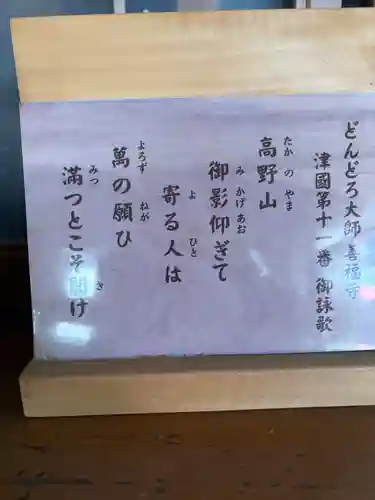 どんどろ大師 善福寺
津國第十一番 御詠歌
高野山
たかのやま
御影仰ぎて
みかげあお
寄る人は
よ ひと
萬の願ひ
よろず ねが
満つとこそ聞け
みつ き